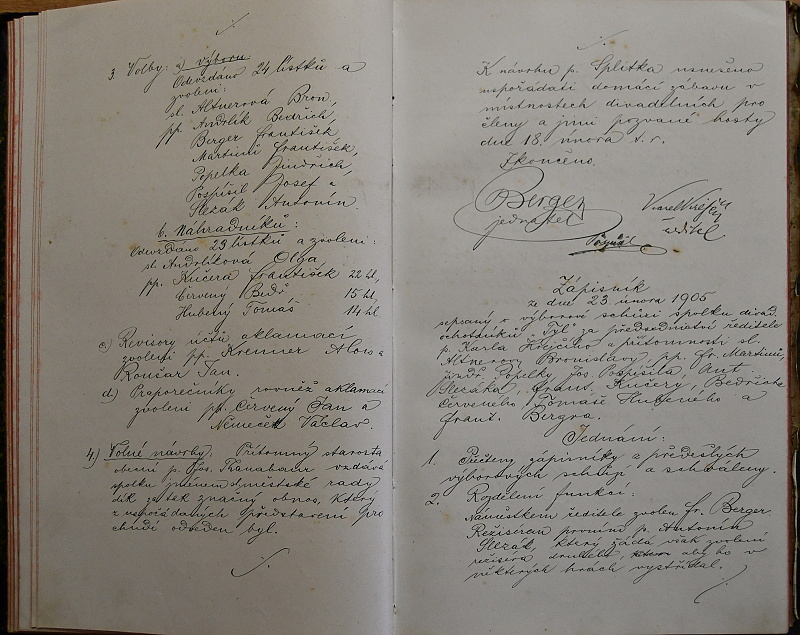 3. Volby: a) výboru
Odevzdáno 24 lístků a
zvoleni:
sl. Altnerová Bron.,
pp. Andrlík Bedřich,
Berger František,
Martinů František,
Popelka Jindřich,
Pospíšil Josef a
Slezák Antonín.
b. Náhradníků:
Odevzdáno 23 lístků a zvoleni:
sl. Andrlíková Olga,
pp. Kučera František 22 hl,
Červený Bedř. 15 hl,
Hubený Tomáš 14 hl
c) Revisory účtů aklamací
zvoleni pp. Kremner Alois a
Roušar Jan.
d) Praporečníky rovněž aklamací
zvoleni pp. Červený Jan a
Němeček Václav.
4) Volné návrhy. Přítomný starosta
obecní p. Jos. vzdává
spolku jménem městské rady
dík za tak značný obnos, který
z uspořádaných představení pro
chudé odveden byl.
K návrhu p. Splítka usneseno
uspořádati domácí zábavu v
místnostech divadelních pro
členy a jimi pozvané hosty
dne 18. února t. r.
Skončeno.
Berger
jednatel
ředitel
Zápisník
ze dne 23 února 1905
sepsaný o výborové schůzi spolku divad.
ochotníků "Tyl" za předsednictví ředitele
p. Karla a přítomnosti sl.
Altnerovy Bronislavy, pp. Fr. Martinů,
Jindř. Popelky, Jos. Pospíšila, Ant.
Slezáka, Frant. Kučery, Bedřicha
Červeného Tomáše Hubeného a
Frant. Bergra.
Jednání:
1. Přečteny zápisníky z předešlých
výborových schůzí a schváleny.
2. Rozdělení funkcí:
Náměstkem ředitele zvolen Fr. Berger
Režisérem prvním p. Antonín
Slezák, který žádá však zvolení
režiséra druhého, aby ho v
některých hrách vystřídal.